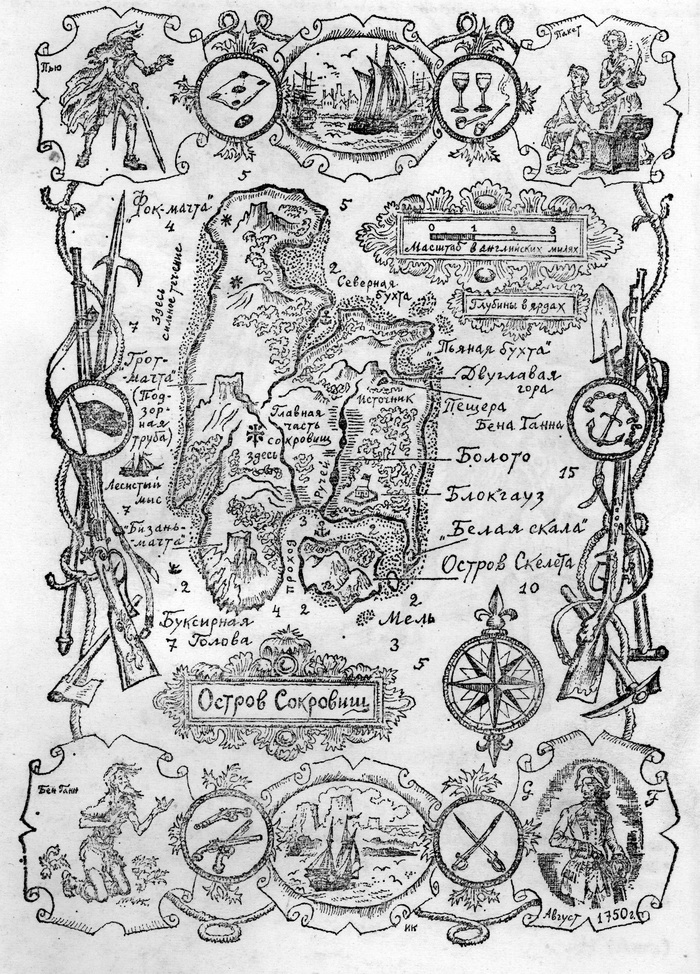 Пью
Пакет
5
5
"Фок-мачта"
4
0 1 2 3
Масштаб в английских милях
Глубины в ярдах
Здесь
сильное течение
7
2
Северная
бухта
"Пьяная бухта"
Двуглавая
гора
Пещера
Бена Ганна
Источник
"Грот-
мачта"
(Под-
зор-
ная
труба)
Главная
часть
сокровищ
здесь
Ручей
Болото
15
Лесистый
мыс
7
Блокгауз
"Бизань-
-мачта"
3
2
"Белая скала"
Остров Скелета
проход
10
2
4
2
2
Буксирная
Голова
7
Мель
3
5
Остров Сокровищ
Бен Ганн
G F
Август 1750 г.
ИК